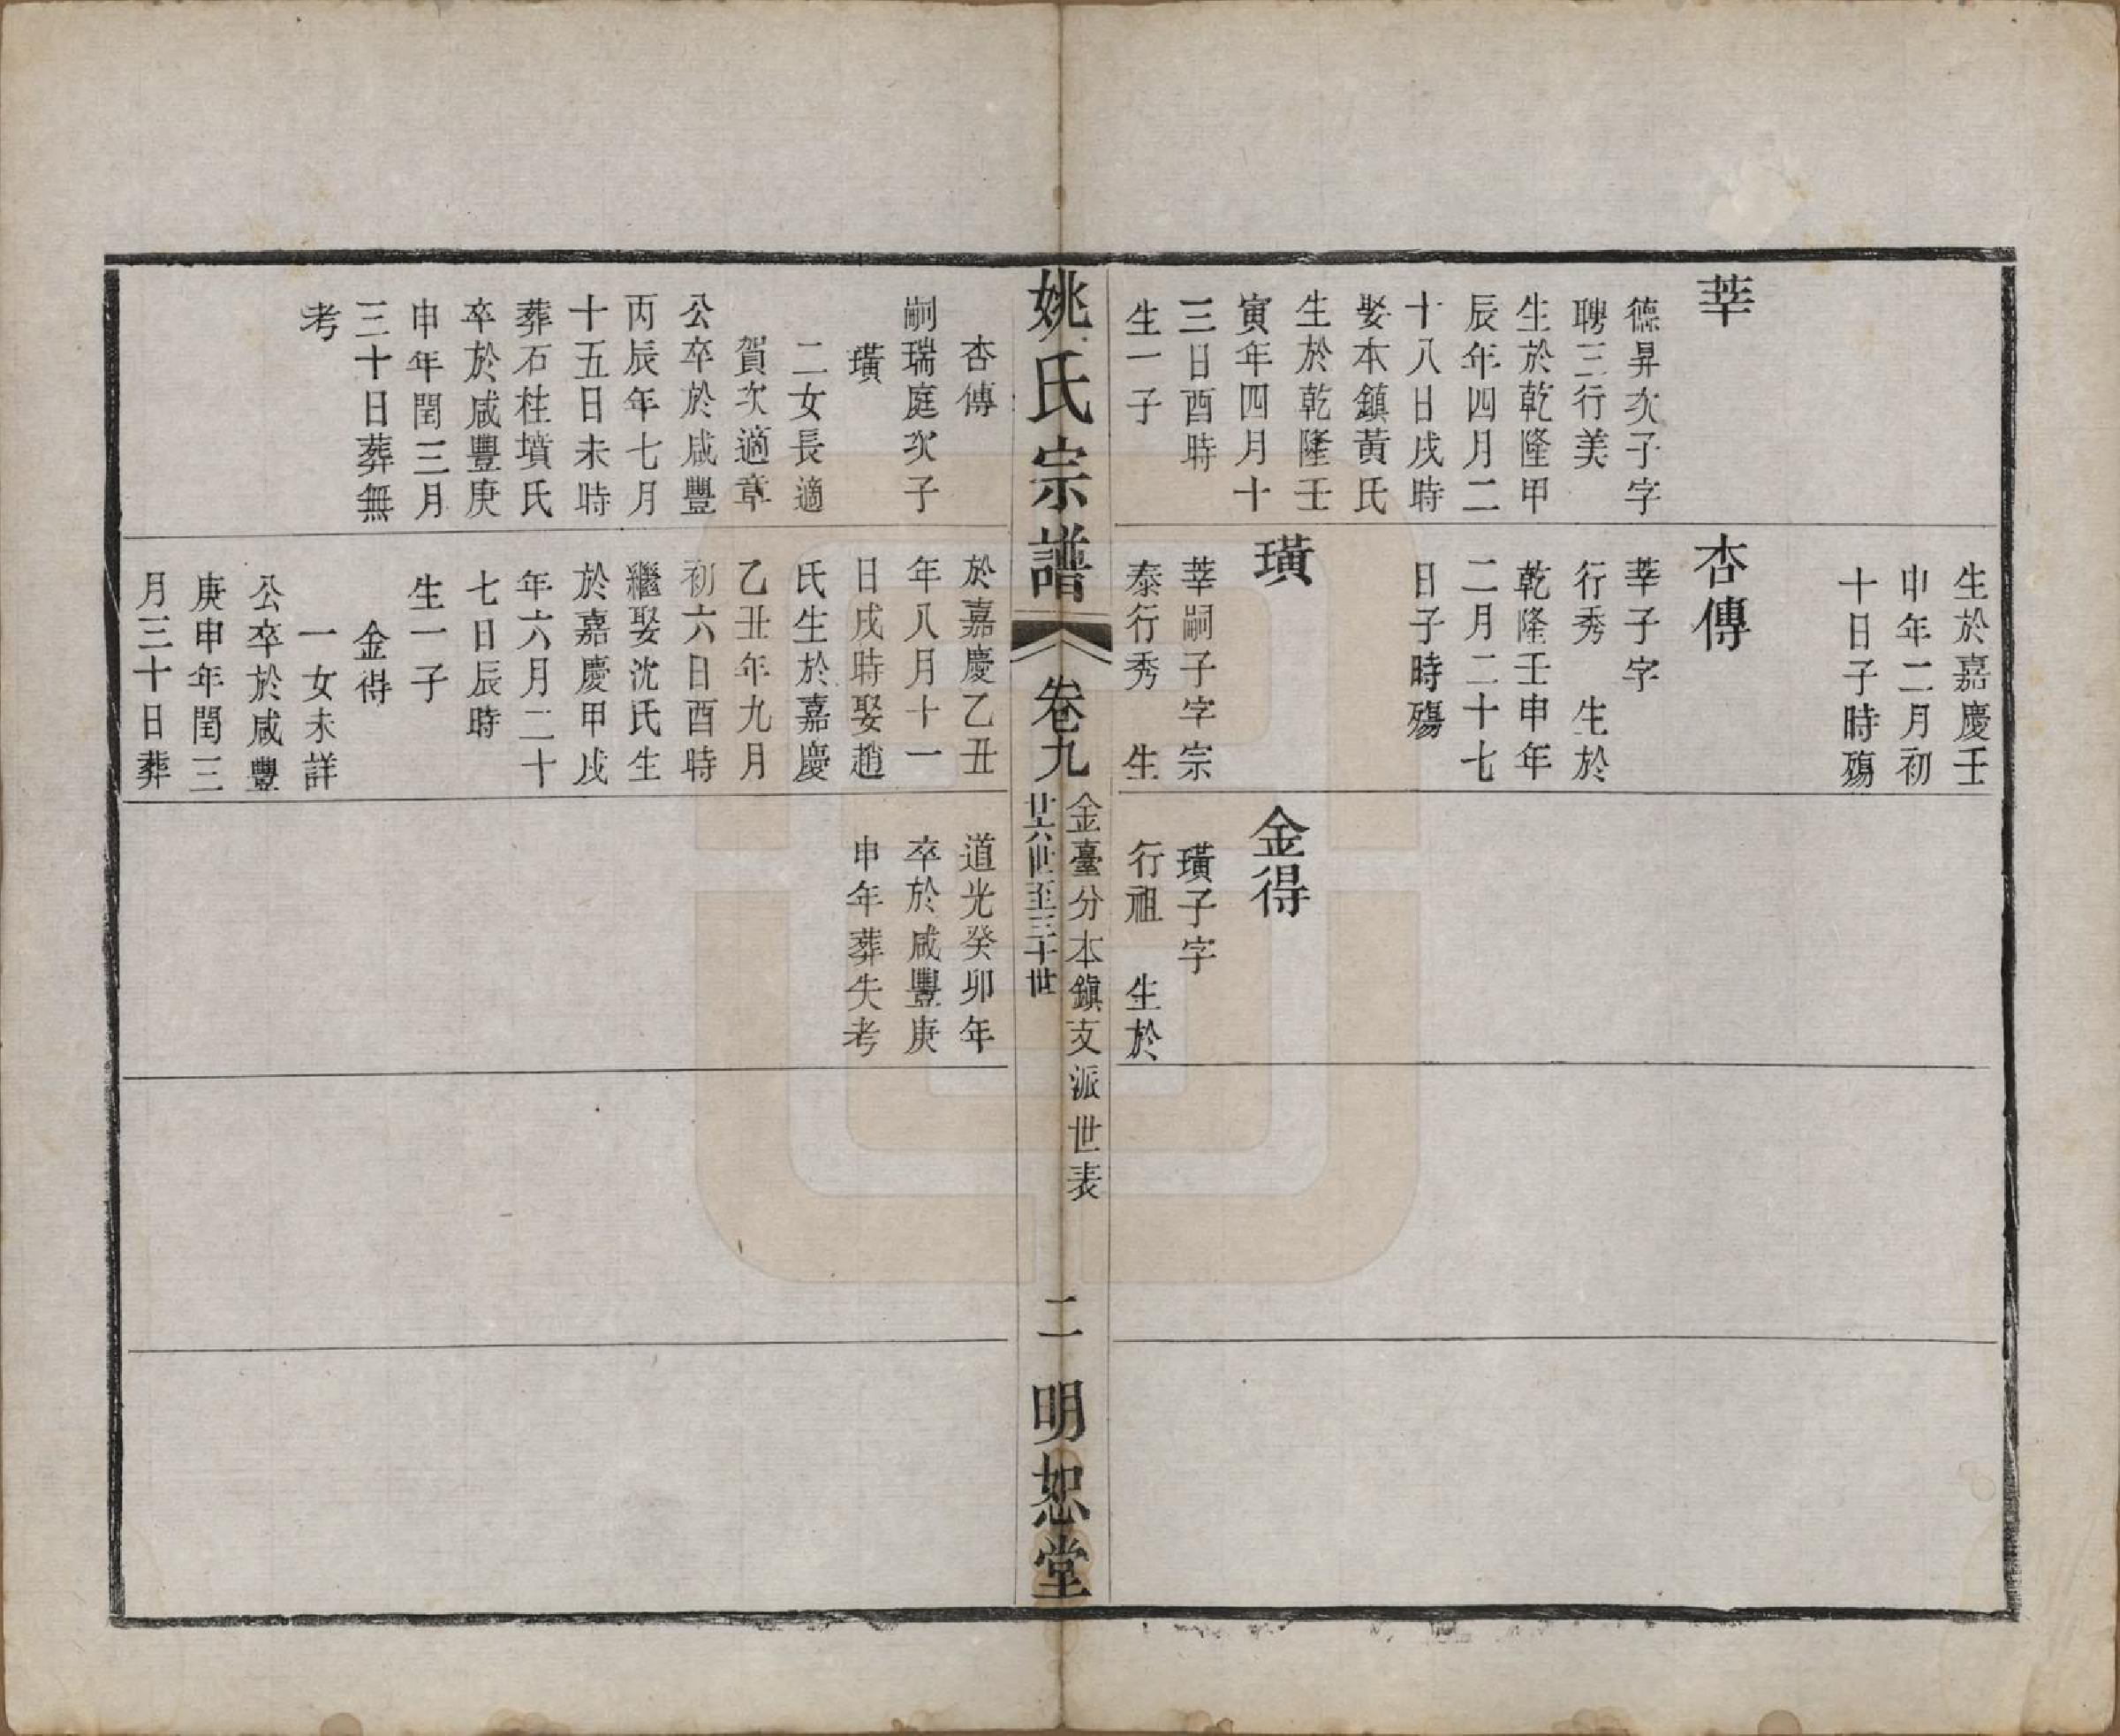 莘
德昇次子字
聘三行美
生於乾隆甲
辰年四月二
十八日戌時
娶本鎮黃氏
生於乾隆壬
寅年四月十
三日酉時
生一子
生於嘉慶壬
申年二月初
十日子時殤
杏傳
莘子字
行秀　生於
乾隆壬申年
二月二十七
日子時殤
璜
莘嗣子字宗
泰行秀　生
金得
璜子字
行祖　生於
姚氏宗譜
卷九
金臺分本鎮支派世表
廿六世至三十世
二
明恕堂
杏傳
嗣瑞庭次子
璜
二女長適
賀次適章
公卒於咸豐
丙辰年七月
十五日未時
葬石柱墳氏
卒於咸豐庚
申年閏三月
三十日葬無
考
於嘉慶乙丑
年八月十一
日戌時娶趙
氏生於嘉慶
乙丑年九月
初六日酉時
繼娶沈氏生
於嘉慶甲戌
年六月二十
七日辰時
生一子
金得
一女未詳
公卒於咸豐
庚申年閏三
月三十日葬
道光癸卯年
卒於咸豐庚
申年葬失考